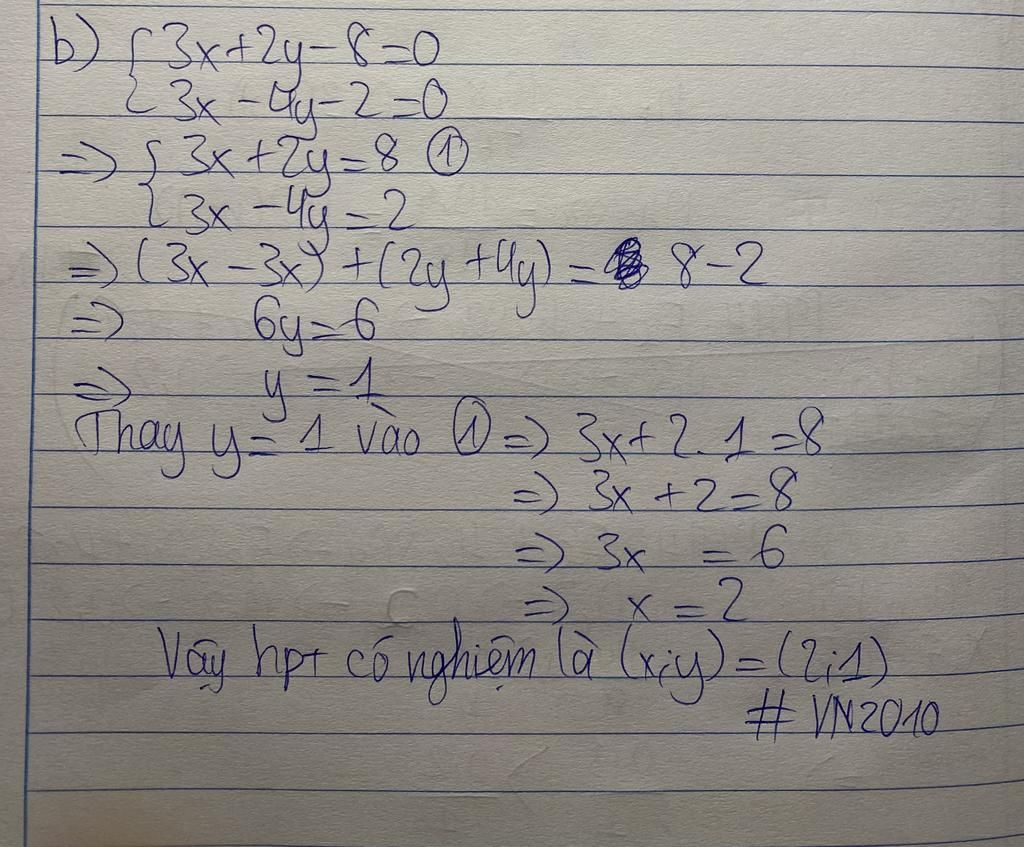 b) { 3x+2y-8=0
{ 3x-4y-2=0
=> { 3x+2y=8 ①
{ 3x-4y=2
=> (3x-3x)+(2y+4y)= 8-2
=> 6y=6
=> y=1
Thay y=1 vào ① => 3x+2.1=8
=> 3x+2=8
=> 3x =6
=> x=2
Vậy hpt có nghiệm là (x;y)=(2;1)
# VN2010